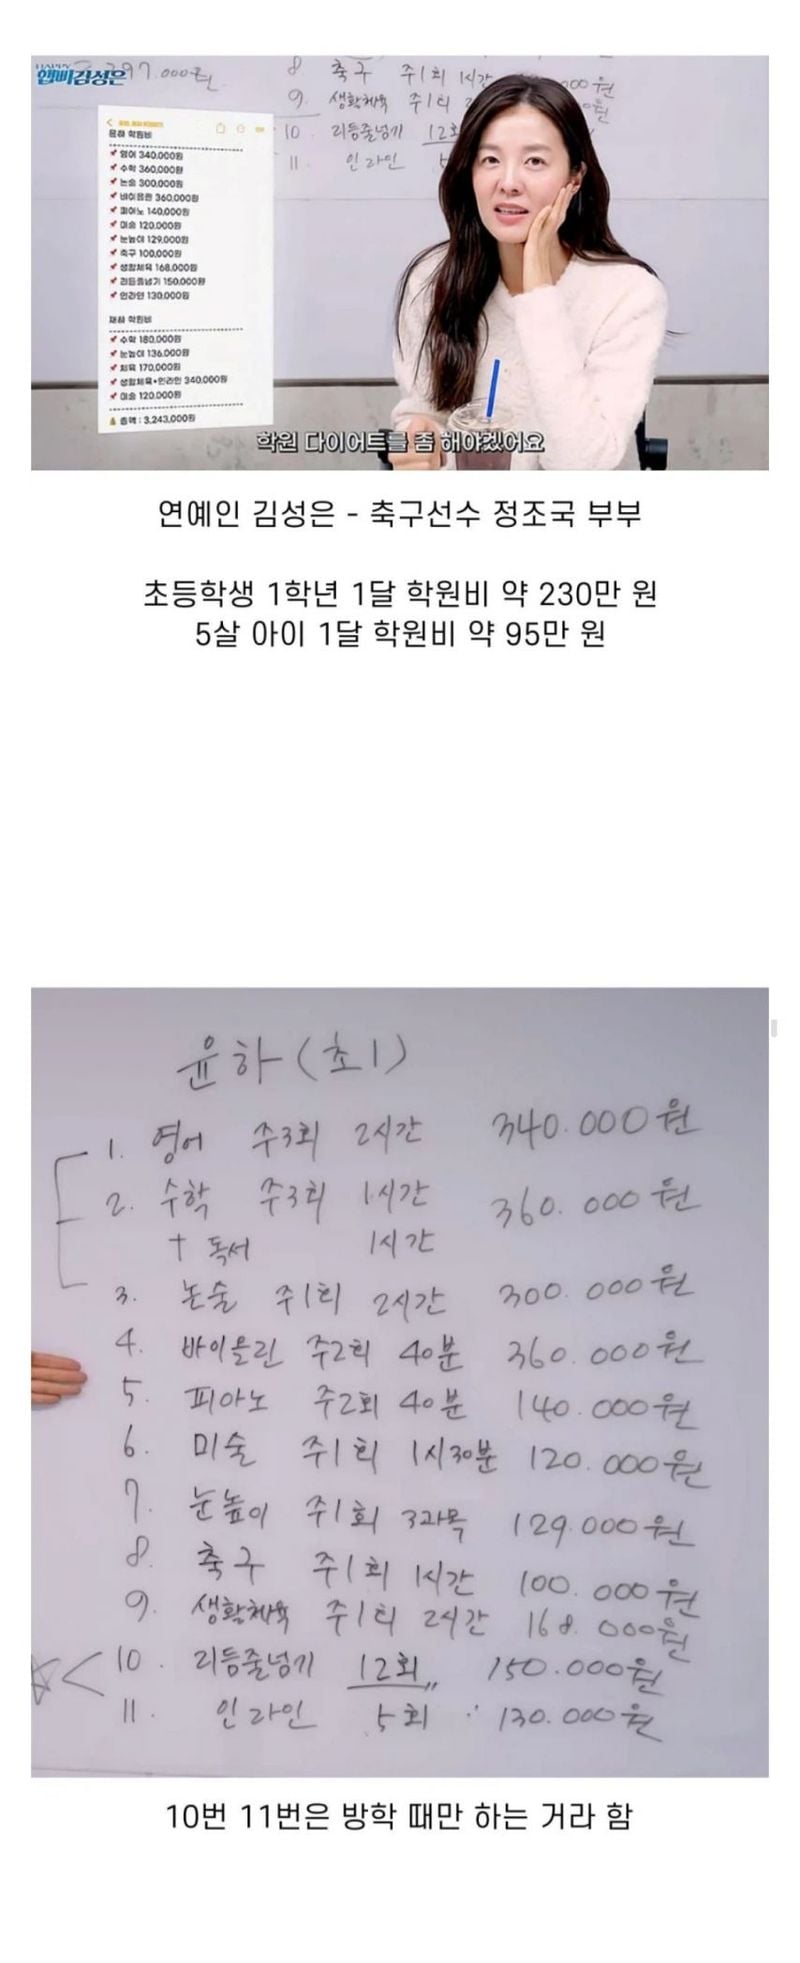 HAPPY
햅삐김성은
297.000원
8 축구 주1회 1시간 000원
9. 생활체육 주1회 원
10. 리듬줄넘기 12회
11. 인라인 5
윤하 학원비
영어 340,000원
수학 360,000원
논술 300,000원
바이올린 360,000원
피아노 140,000원
미술 120,000원
눈높이 129,000원
축구 100,000원
생활체육 168,000원
리듬줄넘기 150,000원
인라인 130,000원
재하 학원비
수학 180,000원
눈높이 136,000원
체육 170,000원
생활체육+인라인 340,000원
미술 120,000원
총액 : 3,243,000원
학원 다이어트를 좀 해야겠어요
연예인 김성은 - 축구선수 정조국 부부
초등학생 1학년 1달 학원비 약 230만 원
5살 아이 1달 학원비 약 95만 원
윤하 (초1)
1. 영어 주3회 2시간 340.000원
2. 수학 주3회 1시간 360.000원
+ 독서 1시간
3. 논술 주1회 2시간 300.000원
4. 바이올린 주2회 40분 360.000원
5. 피아노 주2회 40분 140.000원
6. 미술 주1회 1시30분 120.000원
7. 눈높이 주1회 3과목 129.000원
8. 축구 주1회 1시간 100.000원
9. 생활체육 주1회 2시간 168.000원
10. 리듬줄넘기 12회 150.000원
11. 인라인 5회 130.000원
10번 11번은 방학 때만 하는 거라 함